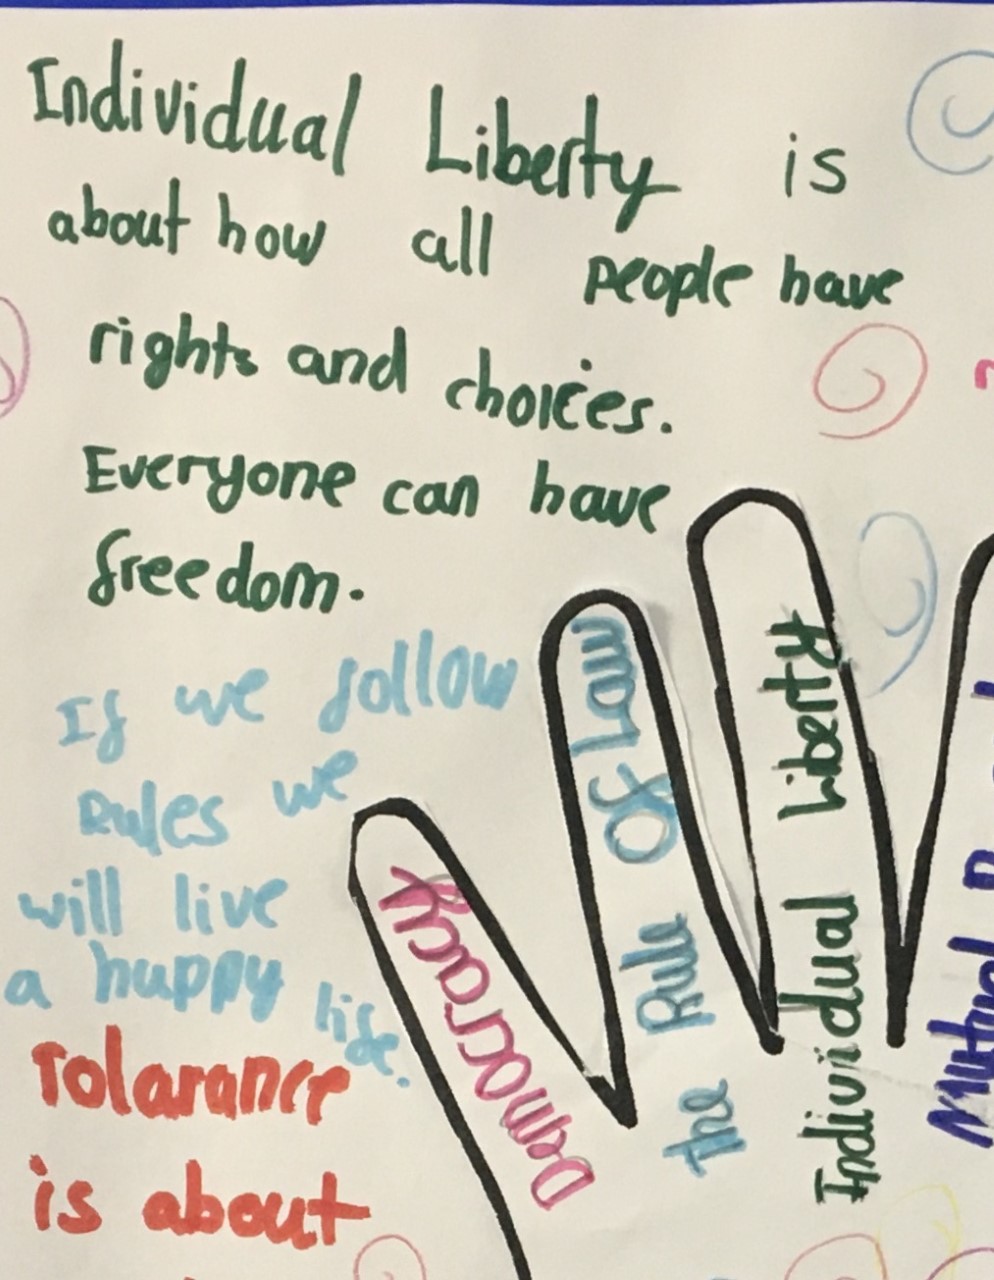 Individual Liberty is
about how all people have
rights and choices.
Everyone can have
freedom.
If we follow
Rules we
will live
a happy life.
Tolarance
is about
Democracy
The Rule Of Law
Individual Liberty
Mutual